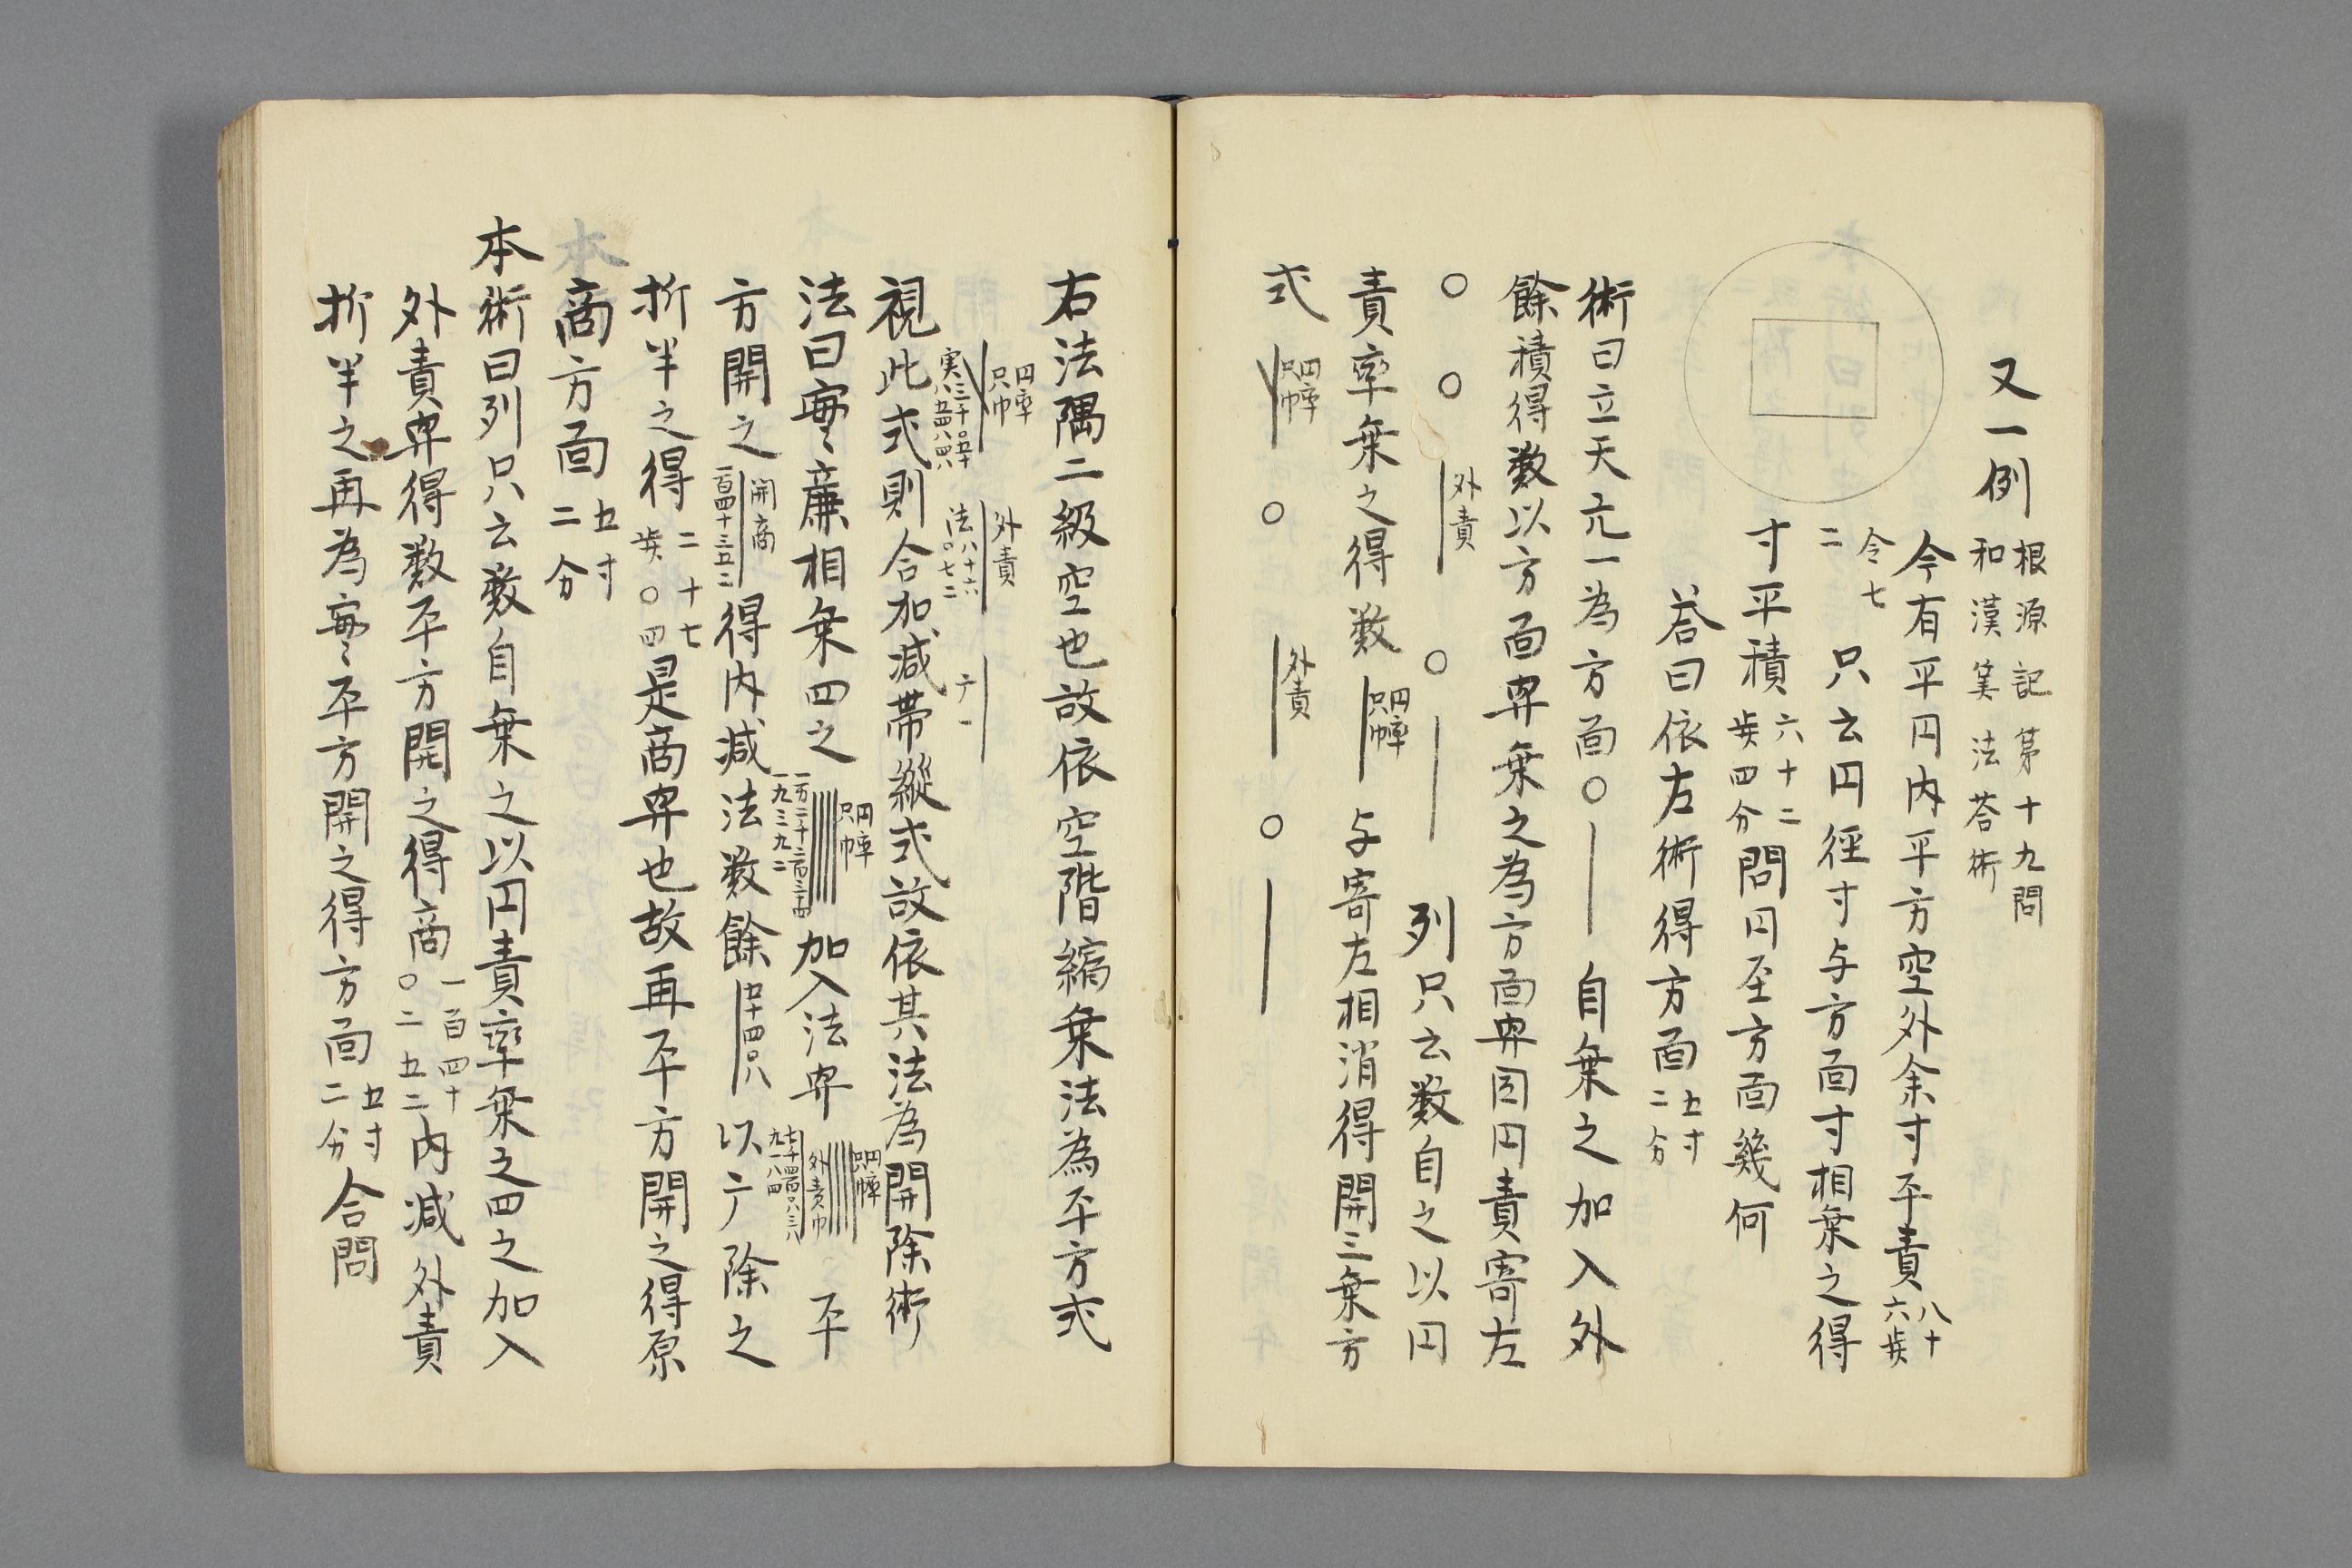 又一例 根源記第十九問
和漢筭法荅術
今有平円内平方空外余寸平責八十六歩
二令七 只云円径寸与方面寸相乗之得
寸平積六十二歩四分問円至方面幾何
荅曰依左術得方面五寸二分
術曰立天亢一為方面〇｜自乗之加入外
餘積得数以方面冪乗之為方面冪因円責寄左
〇〇 外責 〇｜ 列只云数自之以円
責率乗之得数 円率只巾 与寄左相消得開三乗方
式 円率只巾 〇 外責 〇｜
右法隅二級空也故依空階縮乗法為平方式
円率只巾 外責 ｜
実三千 法八十六〇七二 亠一
視此式則合加减帯縦式故依其法為開除術
法曰実廉相乗四之 円率只巾 加入法冪 円率只巾 外責巾 平
方開之 開商 一百四十三五二 得内减法数餘 五十四〇八 以亠除之
折半之得二十七歩〇四是商冪也故再平方開之得原
商方面五寸二分
本術曰列只云数自乗之以円責率乗之四之加入
外責冪得数平方開之得商一百四十〇二五二内减外責
折半之再為実平方開之得方面五寸二分合問